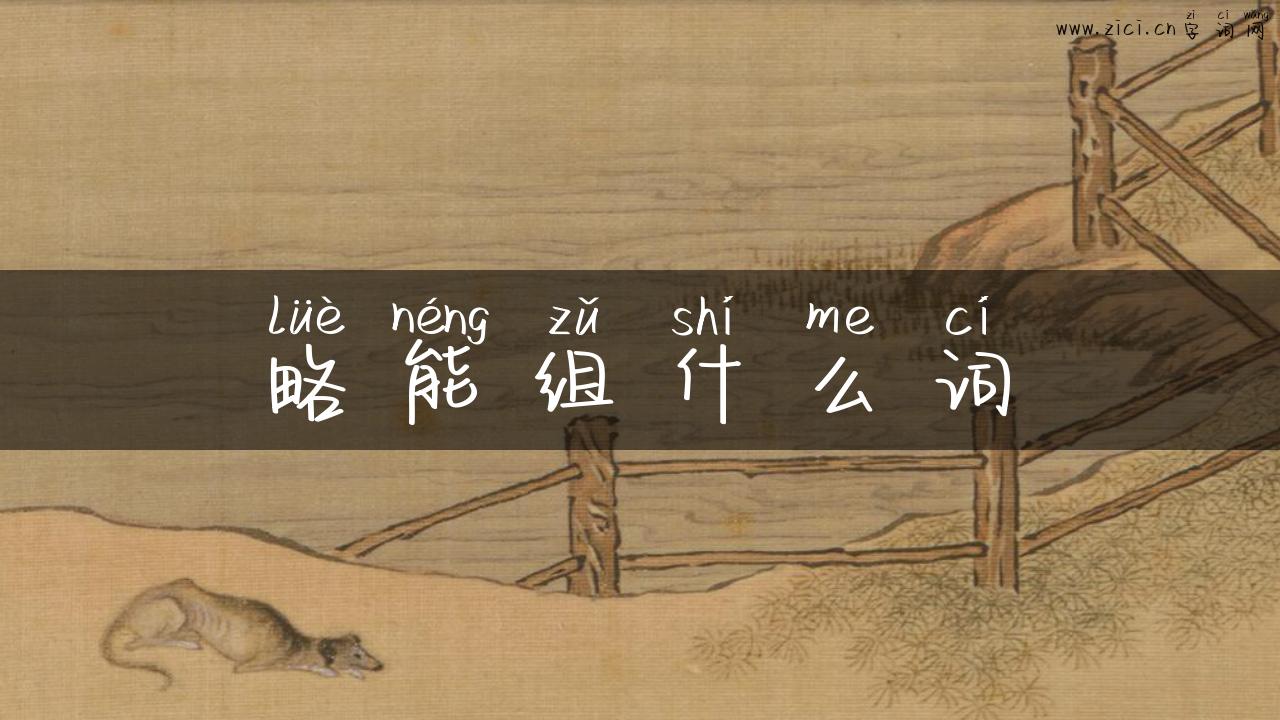 zi ci wang
www.zici.cn 字词网
lüè néng zǔ shí me cí
略能组什么词